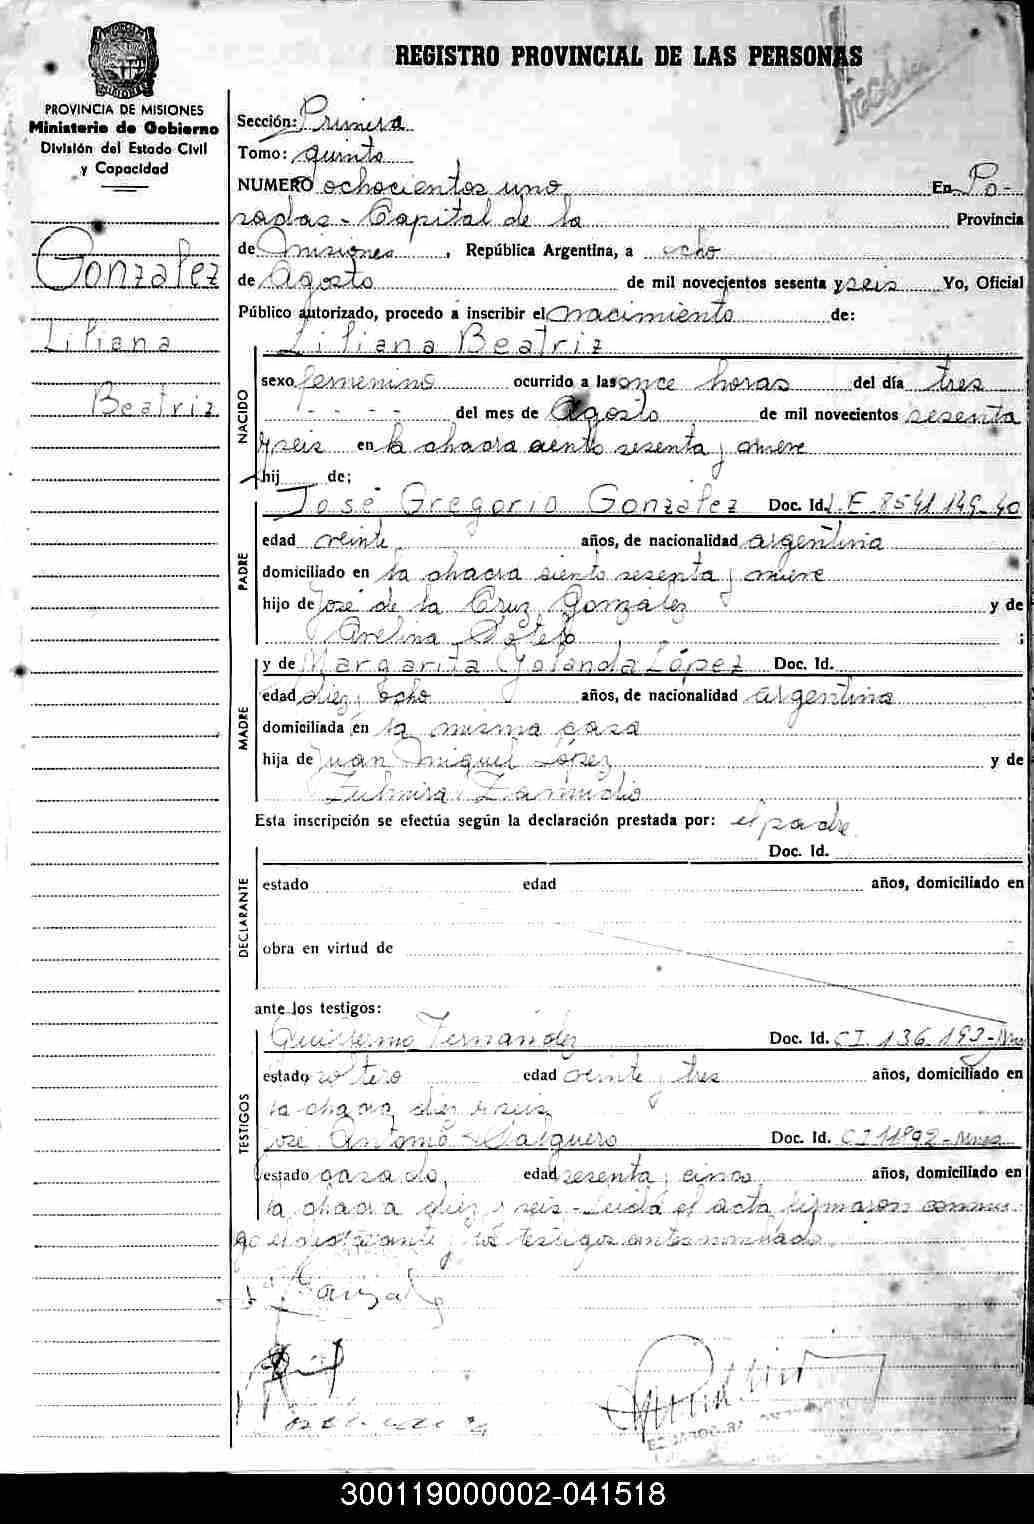 REGISTRO PROVINCIAL DE LAS PERSONAS
PROVINCIA DE MISIONES
Ministerio de Gobierno
División del Estado Civil
y Capacidad
Gonzalez
Liliana
Beatriz
Sección: Primera
Tomo: quinto
NUMERO ochocientos uno En Po-
sadas - Capital de la Provincia
de Misiones, República Argentina, a ocho
de Agosto de mil novecientos sesenta y seis Yo, Oficial
Público autorizado, procedo a inscribir el nacimiento de:
NACIDO
Liliana Beatriz
sexo femenino ocurrido a las once horas del día tres
- - - - - del mes de Agosto de mil novecientos sesenta
y seis en la chacra ciento sesenta y nueve
hij de;
PADRE
José Gregorio González Doc. Id. L E 8541 149-40
edad veinte años, de nacionalidad argentina
domiciliado en la chacra siento sesenta y nueve
hijo de José de la Cruz González y de
Avelina Sotelo ;
MADRE
y de Margarita Yolanda López Doc. Id.
edad diez y ocho años, de nacionalidad argentina
domiciliada en la misma casa
hija de Juan Miguel López y de
Zulmira Zamudio
Esta inscripción se efectúa según la declaración prestada por: el padre
DECLARANTE
Doc. Id.
estado edad años, domiciliado en
obra en virtud de
ante los testigos:
TESTIGOS
Guillermo Fernández Doc. Id. C I. 136.193-Mnes
estado soltero edad veinte y tres años, domiciliado en
la chacra diez y seis
José Antonio Salguero Doc. Id. C I 11892-Mnes
estado casado, edad sesenta y cinco años, domiciliado en
la chacra diez y seis - Leída el acta firmaron conmi-
go el declarante y los testigos antes nombrados
300119000002-041518